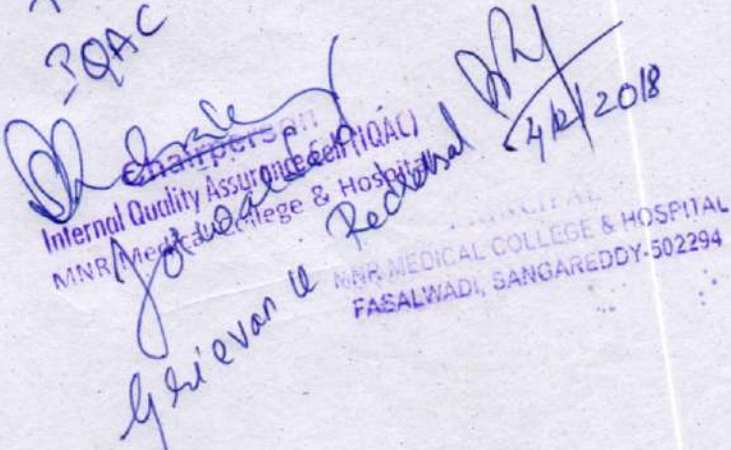 IQAC
Chairperson
Internal Quality Assurance Cell (IQAC)
MNR Medical College & Hospital
Grievance Redressal
4/2/2018
PRINCIPAL
MNR MEDICAL COLLEGE & HOSPITAL
FASALWADI, SANGAREDDY-502294